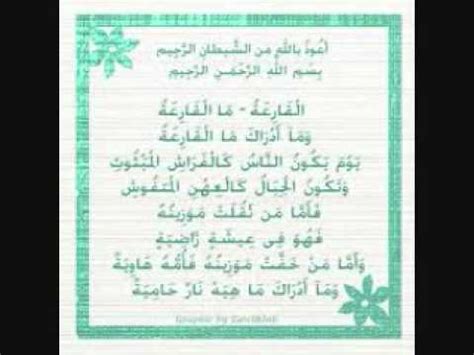 أَعُوذُ بِاللَّهِ مِنَ الشَّيْطَانِ الرَّجِيمِ
بِسْمِ اللَّهِ الرَّحْمَـنِ الرَّحِيمِ
الْقَارِعَةُ - مَا الْقَارِعَةُ
وَمَآ أَدْرَاكَ مَا الْقَارِعَةُ
يَوْمَ يَكُونُ النَّاسُ كَالْفَرَاشِ الْمَبْثُوثِ
وَتَكُونُ الْجِبَالُ كَالْعِهْنِ الْمَنفُوشِ
فَأَمَّا مَن ثَقُلَتْ مَوَزِينُهُ
فَهُوَ فِى عِيشَةٍ رَّاضِيَةٍ
وَأَمَّا مَنْ خَفَّتْ مَوَزِينُهُ فَأُمُّهُ هَاوِيَةٌ
وَمَآ أَدْرَاكَ مَا هِيَهْ نَارٌ حَامِيَةٌ
Graphic by